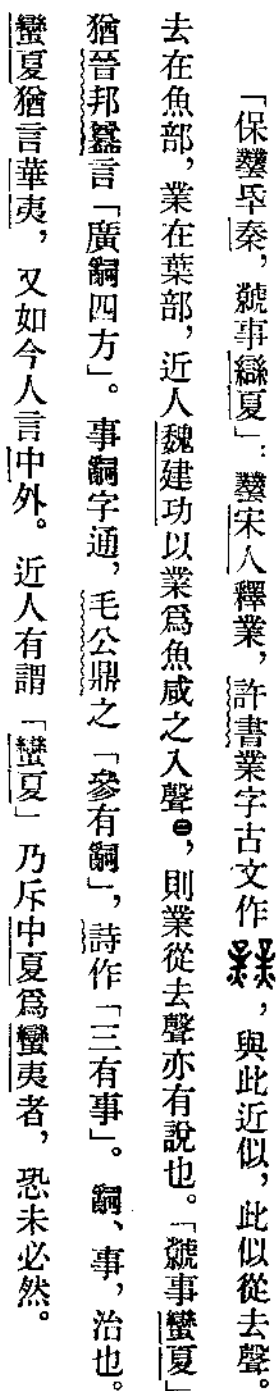 「保𤔲氒秦，虩事䜌夏」：宋人釋業，許書業字古文作，與此近似，此似從去聲。
去在魚部，業在葉部，近人魏建功以業爲魚咸之入聲㊁，則業從去聲亦有說也。「虩事蠻夏」
猶晉邦𥂴言「廣嗣四方」。事嗣字通，毛公鼎之「參有嗣」，詩作「三有事」。嗣、事，治也。
蠻夏猶言華夷，又如今人言中外。近人有謂「蠻夏」乃斥中夏爲蠻夷者，恐未必然。